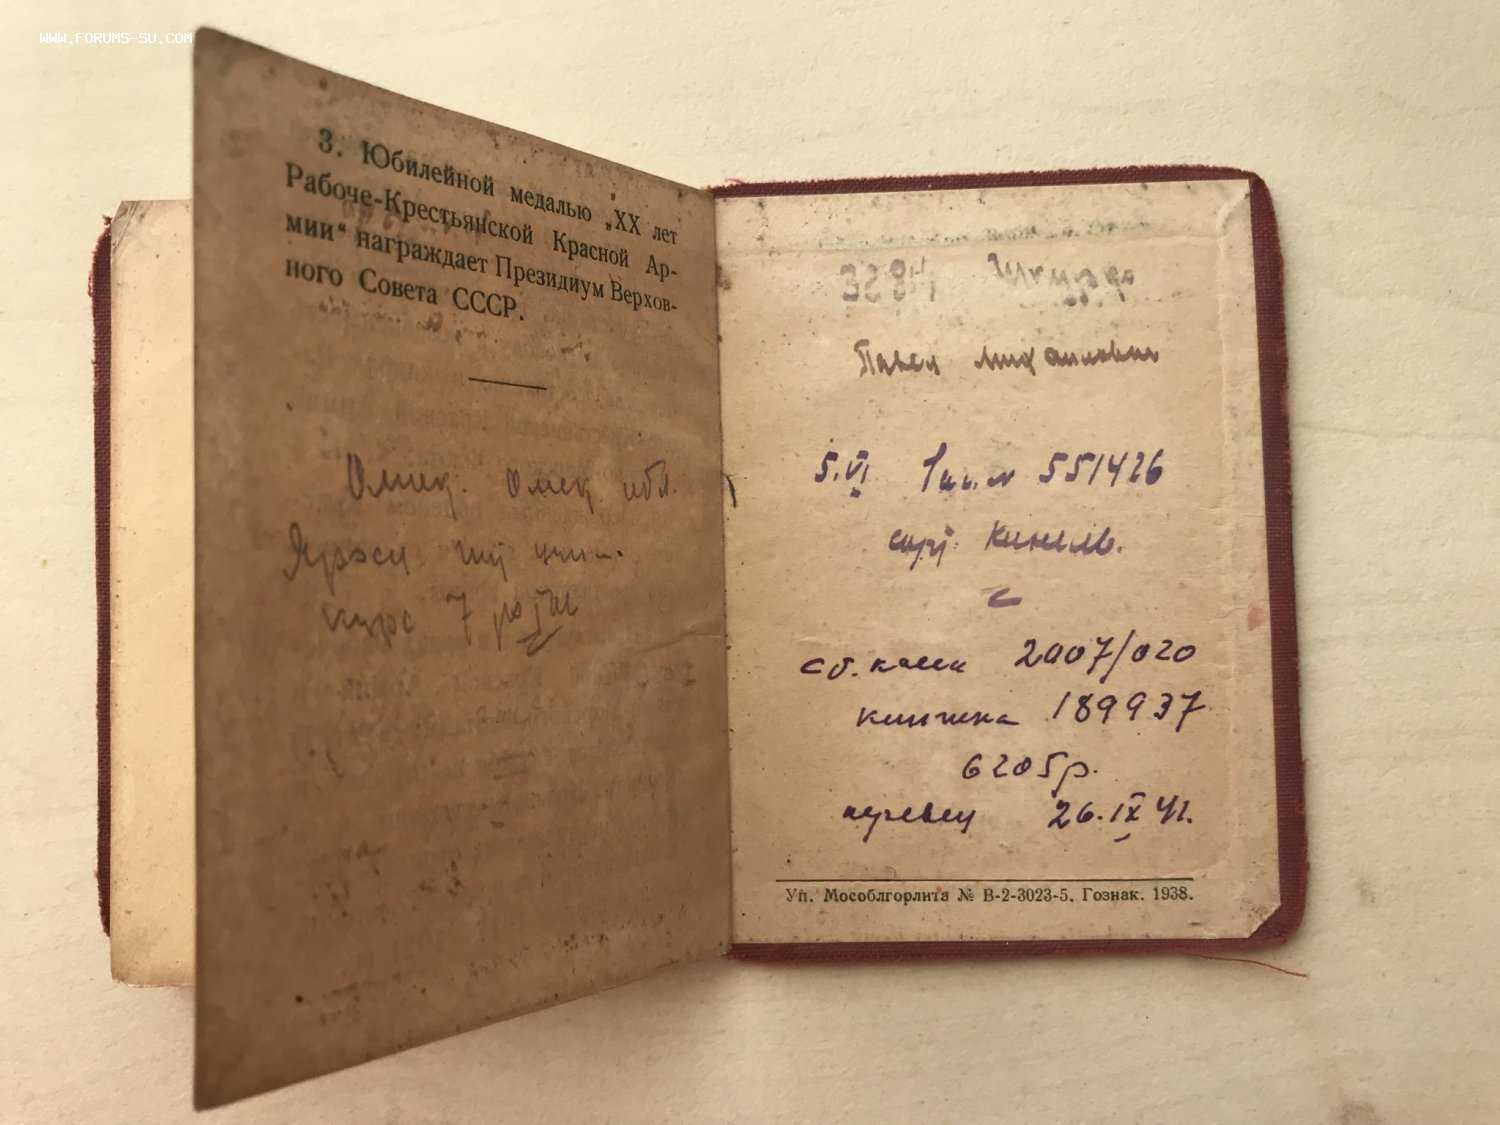 WWW.FORUMS-SU.COM
3. Юбилейной медалью „XX лет
Рабоче-Крестьянской Красной Ар-
мии“ награждает Президиум Верхов-
ного Совета СССР.
Омск. Омск обл.
курс 7 рота
3284
Павел Михайлович
5.VI № 551426
Кинель.
сб. касса 2007/020
книжка 189937
6205р.
перевед 26.IX 41.
Уп. Мособлгорлита № В-2-3023-5. Гознак. 1938.